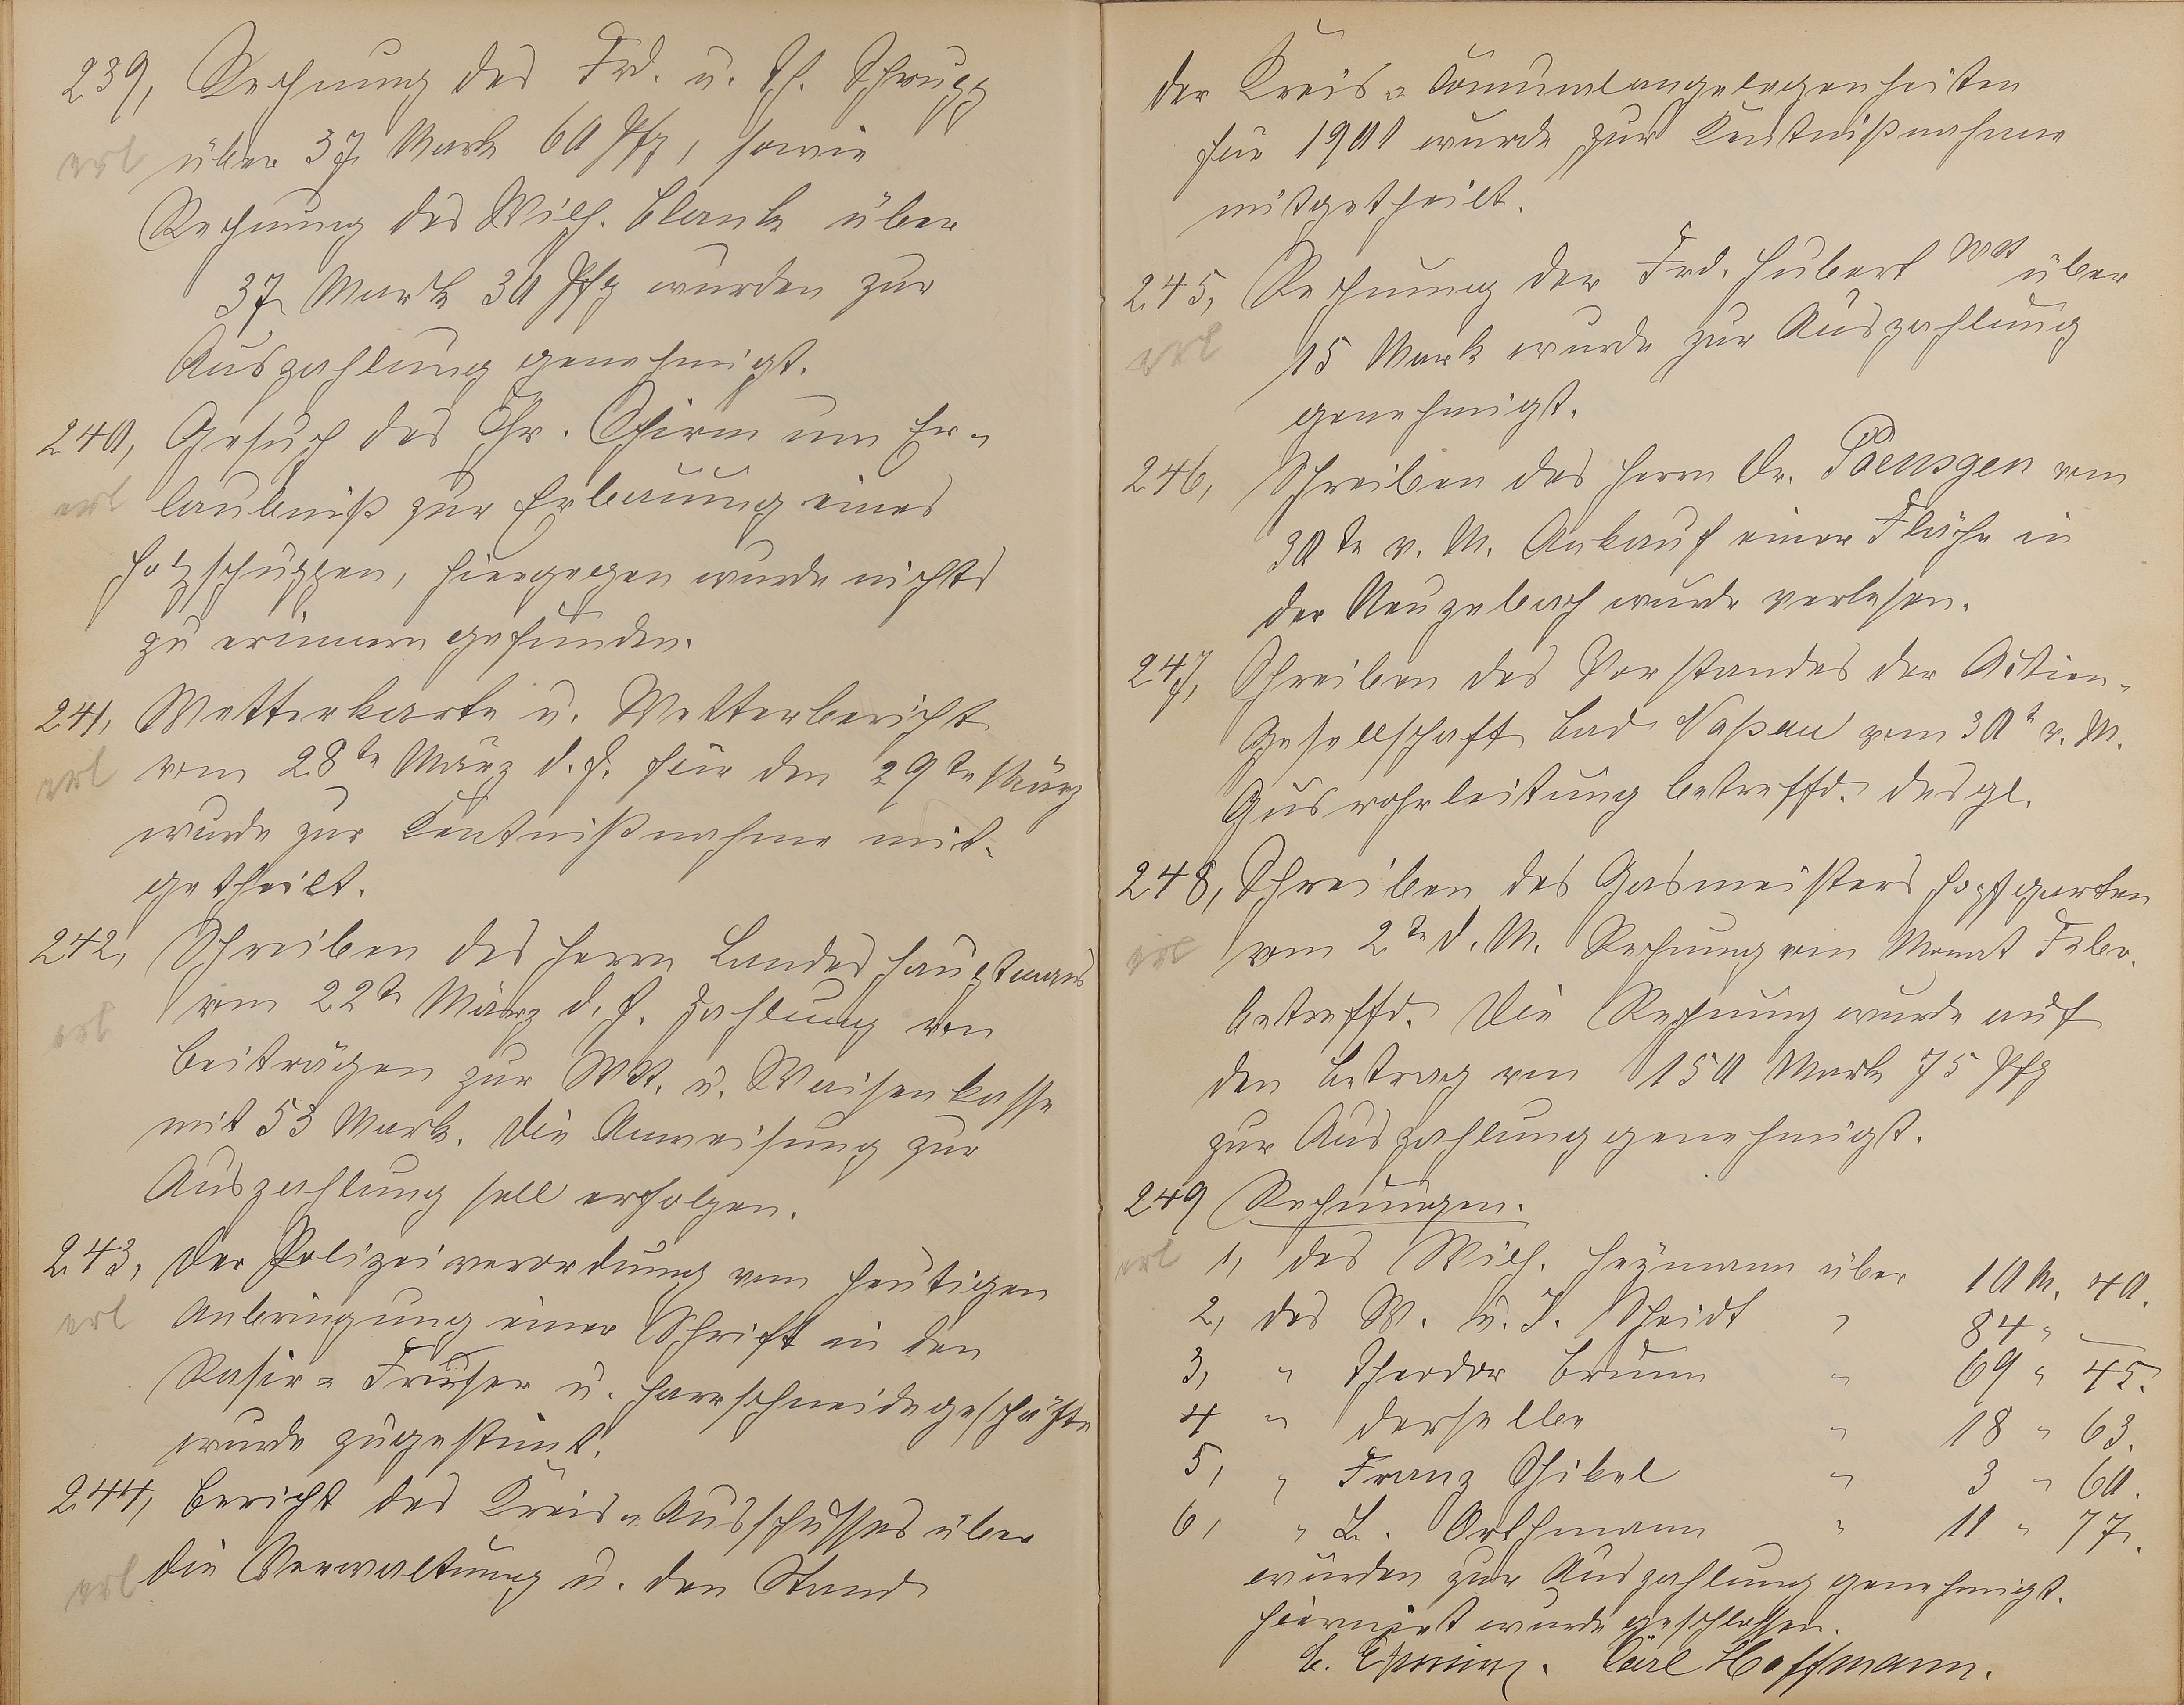 239, Rechnung des Frd. u. Th. Schrupp
erl über 37 Mark 60 Pfg, sowie
Rechnung des Wilh. Blank über
37 Mark 30 Pfg wurden zur
Auszahlung genehmigt.
240, Gesuch des Chr. Schirm um Er-
erl laubniß zur Erbauung eines
Holzschuppen, hiergegen wurde nichts
zu erinnern gefunden.
241, Wetterkarte u. Wetterbericht
erl vom 28te März d. J. für den 29te März
wurde zur Kentnißnahme mit-
getheilt.
242, Schreiben des Herrn Landeshauptmans
erl vom 22te März d. J. Zahlung von
Beiträgen zur Wt. u. Waisenkasse
mit 53 Mark. Die Anweisung zur
Auszahlung soll erfolgen.
243, Der Polizeiverordnung vom heutigen
erl Anbringung einer Schrift in den
Rasir= Friser u. Harrschneidegeschäfte
wurde zugestimt.
244, Bericht des Kreis-Ausschusses über
erl die Verwaltung u. den Stand
der Kreis= Comunalangelegenheiten
für 1901 wurde zur Kentnißnahme
mitgetheilt.
245, Rechnung der Frd. Hubert Wt über
erl 15 Mark wurde zur Auszahlung
genehmigt.
246, Schreiben des Herrn Dr. Poensgen vom
30te v. M. Ankauf einer Fläche in
der Neuzebach wurde verlesen.
247, Schreiben des Vorstandes der Actien-
Gesellschaft Bad Naßau vom 30t v. M.
Gusrohrleitung betreffd. desgl.
248, Schreiben des Gasmeisters Hopfgarten
erl vom 2te d. M. Rechnung vin Monat Febr.
betreffd. Die Rechnung wurde auf
den Betrag von 150 Mark 75 Pfg
zur Auszahlung genehmigt.
249 Rechnungen.
erl 1, des Wilh. Heymann über 10 M. 40.
2, des W. u. J. Scheidt " 84 " —
3, " Theodor Brunn " 69 " 45.
4 " derselbe " 18 " 63.
5, " Franz Schikel " 3 " 60.
6, " L. Orthmann " 11 " 77.
wurden zur Auszahlung genehmigt.
Hiermit wurde geschlossen.
Carl Hoffmann.